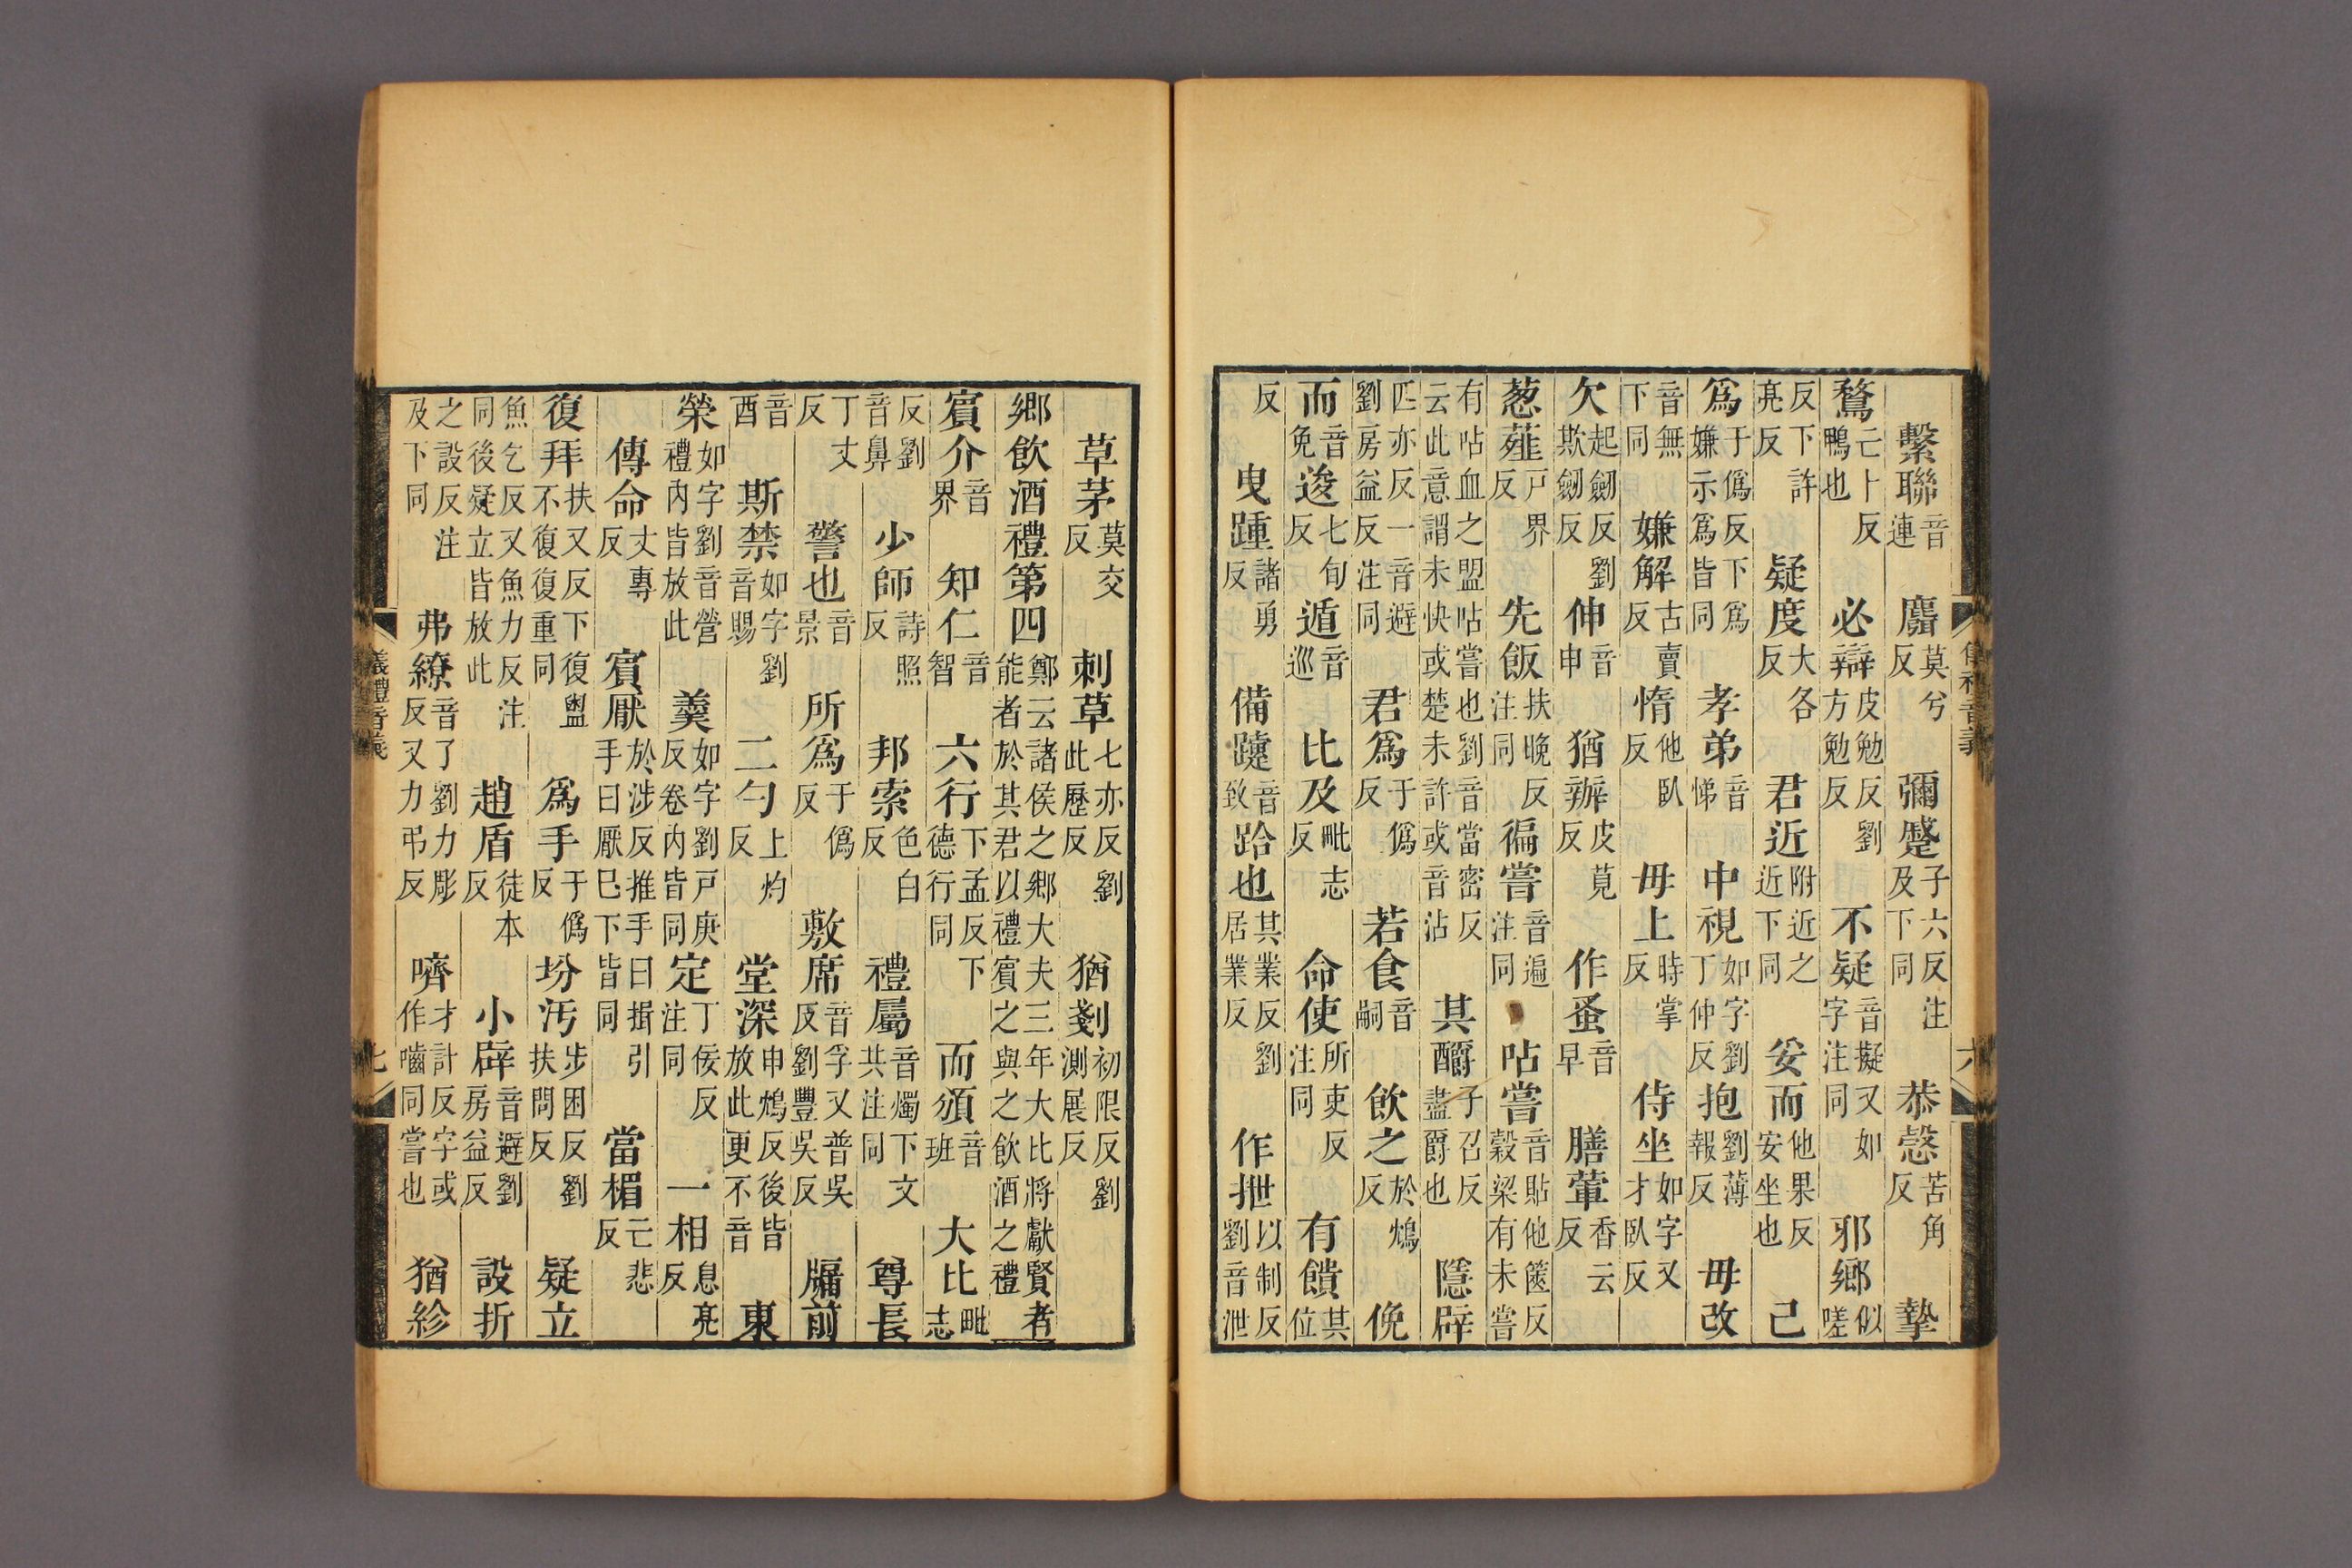 儀禮音義 六
繫聯音連 麛莫兮反 彌蹙子六反注及下同 恭愨苦角反 摯
鶩亡卜反鴨也 必辯皮勉反劉方勉反 不疑音擬又如字注同 邪鄉似嗟
反下許亮反 疑度大各反 君近附近之近下同 妥而他果反安坐也 己
爲于僞反下爲嫌示爲皆同 孝弟音悌 中視如字劉丁仲反 抱劉薄報反 毋改
音無下同 嫌解古賣反 惰他臥反 毋上時掌反 侍坐如字又才臥反
欠起劒反劉欺劒反 伸音申 猶辦皮莧反 作蚤音早 膳葷香云反
葱薤戶界反 先飯扶晚反注同 徧嘗音遍注同 呫嘗音貼他篋反穀梁有未嘗
有呫血之盟呫嘗也劉音當密反云此意謂未快或楚未許或音沾 其釂子召反盡爵也 隱辟
匹亦反一音避劉房益反注同 君爲于僞反 若食音嗣 飲之於鴆反 俛
而音免 逡七旬反 遁音巡 比及毗志反 命使所吏反注同 有饋其位
反 曳踵諸勇反 備躓音致 跲也其業反劉居業反 作抴以制反劉音泄
草茅莫交反 刺草七亦反劉此歷反 猶剗初限反劉測展反
鄉飲酒禮第四鄭云諸侯之鄉大夫三年大比將獻賢者能者於其君以禮賓之與之飲酒之禮
賓介音界 知仁音智 六行下孟反下德行同 而頒音班 大比毗志
反劉音鼻 少師詩照反 邦索色白反 禮屬音燭下文共注同 尊長
丁丈反 警也音景 所爲于僞反 敷席音孚又普吳反劉豐吳反 牖前
音酉 斯禁如字劉音賜 二勺上灼反 堂深申鴆反後皆放此更不音 東
榮如字劉音營禮內皆放此 羹如字劉戶庚反卷內皆同 定丁佞反注同 一相息亮反
傳命丈專反 賓厭於涉反推手曰揖引手曰厭巳下皆同 當楣亡悲反
復拜扶又反下復盥不復復重同 爲手于僞反 坋汚步困反劉扶問反 疑立
魚乞反又魚力反注同後疑立皆放此 趙盾徒本反 小辟音避劉房益反 設折
之設反注及下同 弗繚音了劉力彫反又力弔反 嚌才計反字或作嚙同嘗也 猶紾
儀禮音義 七